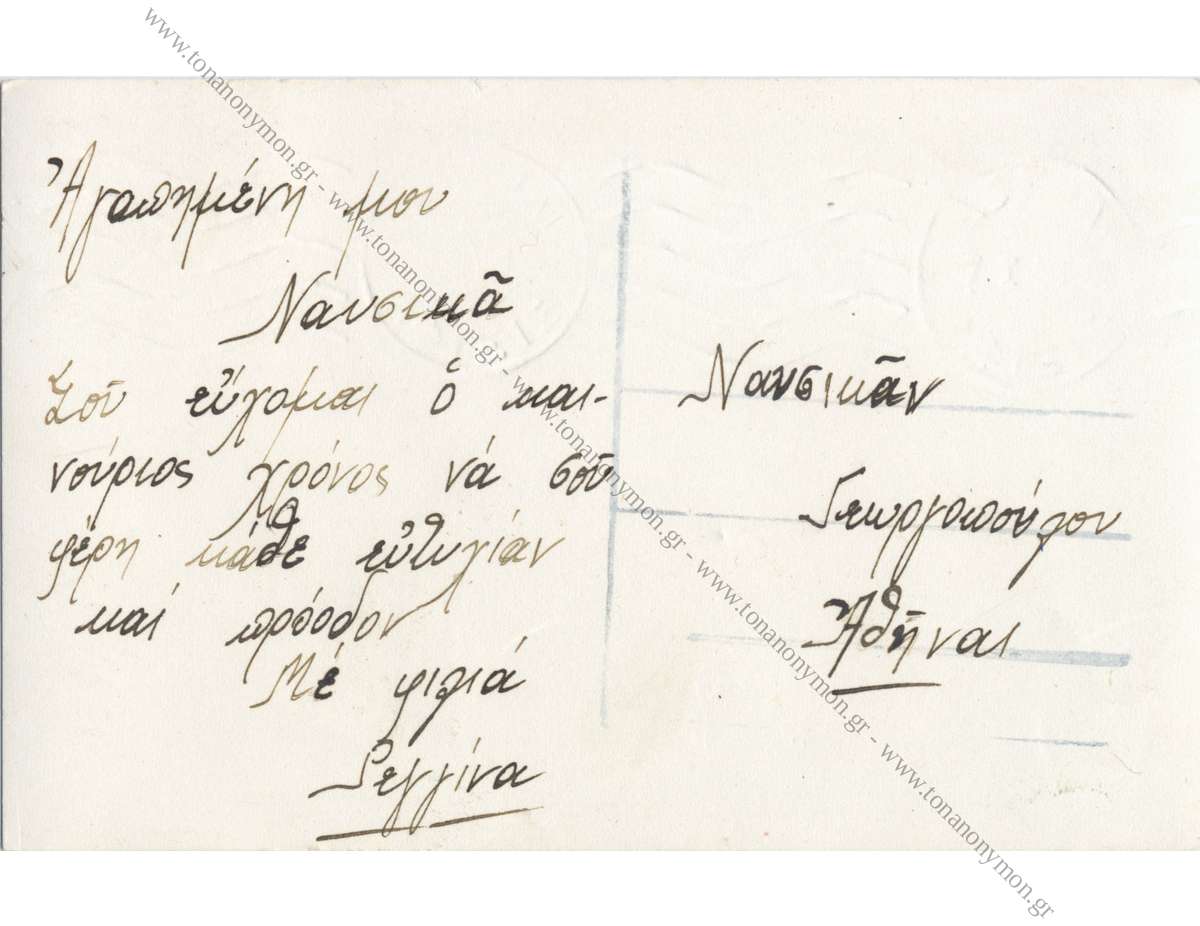 Ἀγαπημένη μου
Ναυσικᾶ
Σοῦ εὔχομαι ὁ και-
νούριος χρόνος νά σοῦ
φέρη κάθε εὐτυχίαν
καί πρόοδον
Μέ φιλιά
Ρεγγίνα
Ναυσικᾶν
Γεωργοπούλου
Ἀθήναι
www.tonanonymon.gr - www.tonanonymon.gr - www.tonanonymon.gr - www.tonanonymon.gr - www.tonanonymon.gr